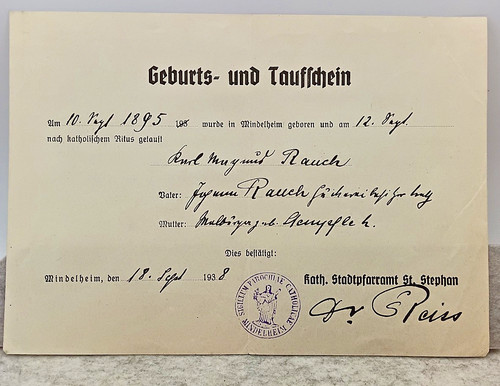 Geburts- und Taufschein
Am 10. Sept 1895 193 wurde in Mindelheim geboren und am 12. Sept.
nach katholischem Ritus getauft
Karl Magnus Rauch
Vater: Rauch
Mutter: Walburga geb.
Dies bestätigt:
Mindelheim, den 18. Sept 1938
Kath. Stadtpfarramt St. Stephan
Dr Reiss
SIGILLUM PAROCHIAE CATHOLICAE
MINDELHEIM